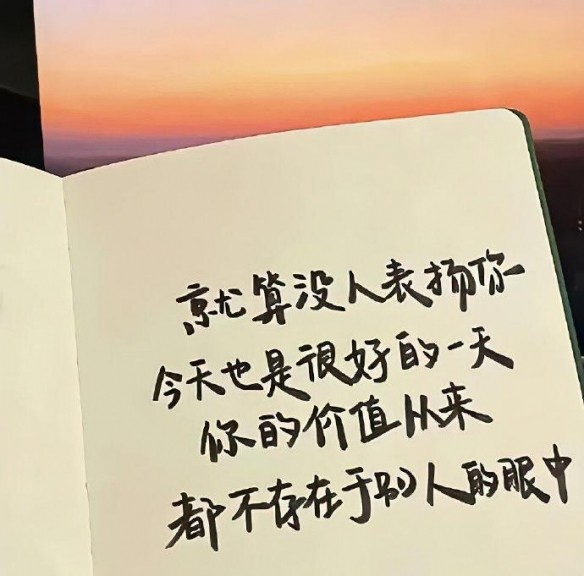 就算没人表扬你
今天也是很好的一天
你的价值从来
都不存在于别人的眼中